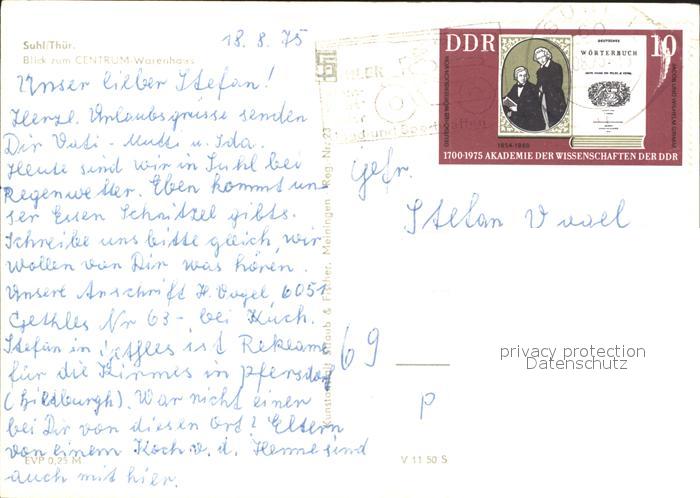 18. 8. 75
Suhl/Thür.
Blick zum CENTRUM-Warenhaus
Unser lieber Stefan!
Herzl. Urlaubsgrüsse senden
Dir Vati - Mutti u. Ida.
Heute sind wir in Suhl bei
Regenwetter. Eben kommt un-
ser Essen Schnitzel gibts.
Schreibe uns bitte gleich, wir
wollen von Dir was hören.
Unsere Anschrift H. Vogel, 6051
Gethles Nr 63 - bei Kuch.
Stefan in Gethles ist Reklame
für die Kirmes in Pfersdorf
(Hildburgh). War nicht einen
bei Dir von diesen Ort? Eltern
von einem Koch v. d. Henne sind
auch mit hier.
EVP 0,25 M
V 11 50 S
Straub & Fischer, Meiningen Reg Nr: 23
DDR
DEUTSCHES
WÖRTERBUCH
10
JACOB UND WILHELM GRIMM
1854-1960
1700-1975 AKADEMIE DER WISSENSCHAFTEN DER DDR
Gefr.
Stefan Vogel
69
P
privacy protection
Datenschutz